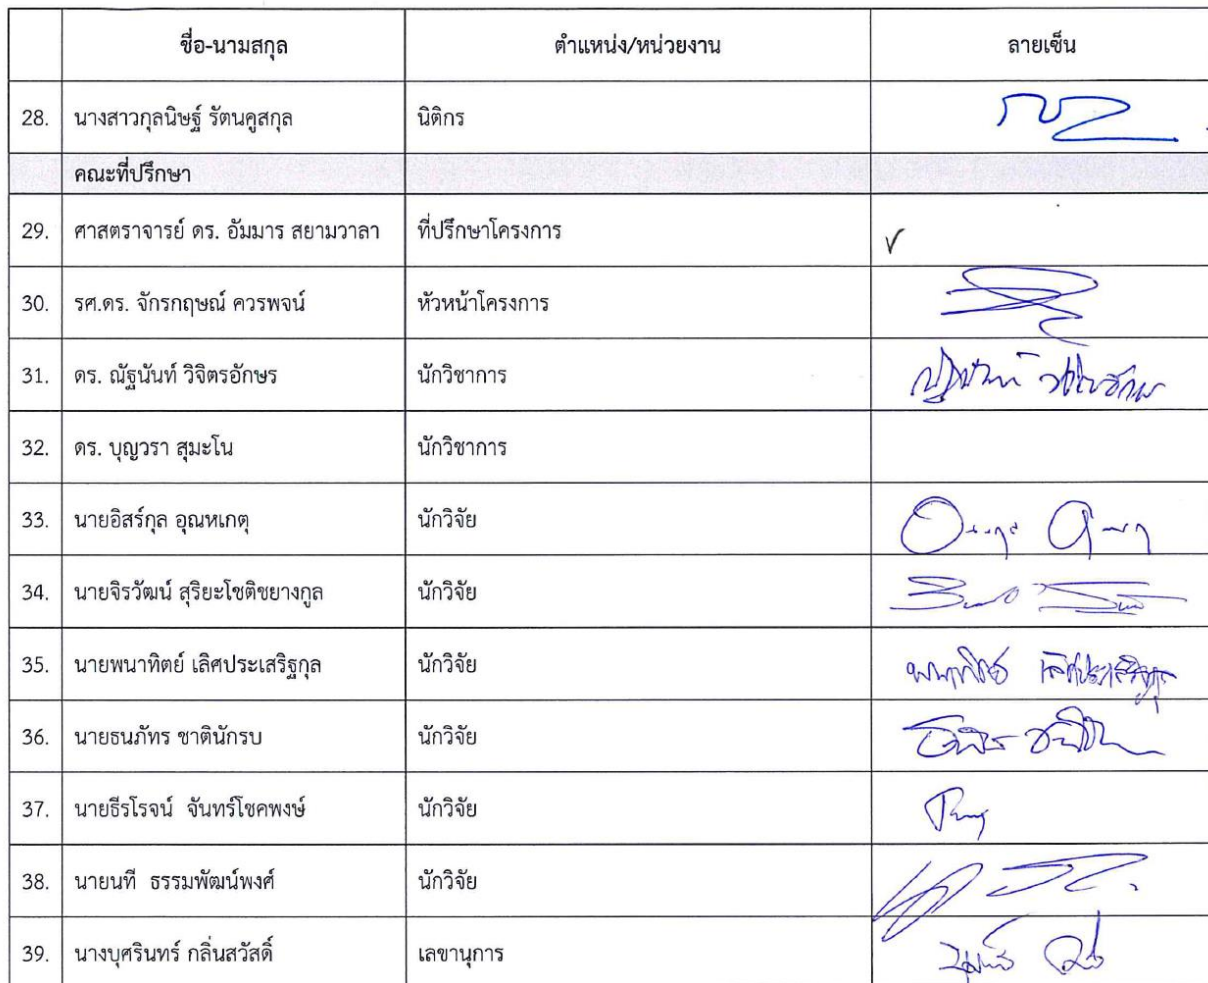 ชื่อ-นามสกุล ตำแหน่ง/หน่วยงาน ลายเซ็น
28. นางสาวกุลนิษฐ์ รัตนคูสกุล นิติกร
คณะที่ปรึกษา
29. ศาสตราจารย์ ดร. อัมมาร สยามวาลา ที่ปรึกษาโครงการ ✓
30. รศ.ดร. จักรกฤษณ์ ควรพจน์ หัวหน้าโครงการ
31. ดร. ณัฐนันท์ วิจิตรอักษร นักวิชาการ
32. ดร. บุญวรา สุมะโน นักวิชาการ
33. นายอิสร์กุล อุณหเกตุ นักวิจัย
34. นายจิรวัฒน์ สุริยะโชติชยางกูล นักวิจัย
35. นายพนาทิตย์ เลิศประเสริฐกุล นักวิจัย พนาทิตย์ เลิศประเสริฐกุล
36. นายธนภัทร ชาตินักรบ นักวิจัย
37. นายธีรโรจน์ จันทร์โชคพงษ์ นักวิจัย
38. นายนที ธรรมพัฒน์พงศ์ นักวิจัย
39. นางบุศรินทร์ กลิ่นสวัสดิ์ เลขานุการ